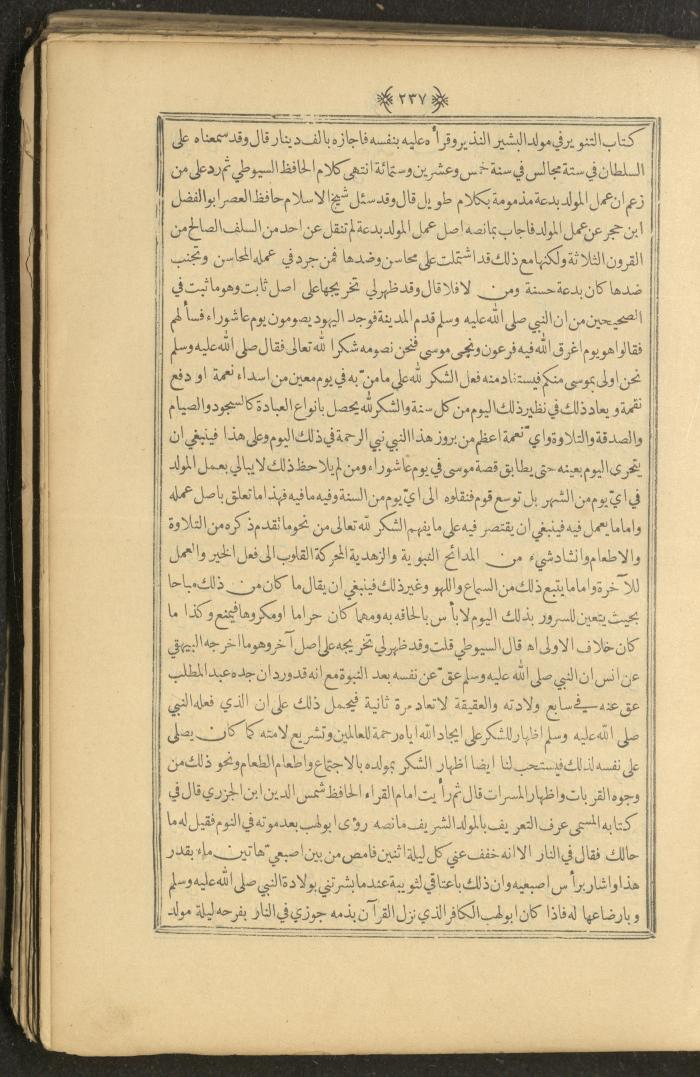 ﴿٢٣٧﴾
كتاب التنوير في مولد البشير النذير وقرأه عليه بنفسه فاجازه بالف دينار قال وقد سمعناه على
السلطان في ستة مجالس في سنة خمس وعشرين وستمائة انتهى كلام الحافظ السيوطي ثم رد على من
زعم ان عمل المولد بدعة مذمومة بكلام طويل قال وقد سئل شيخ الاسلام حافظ العصر ابو الفضل
ابن حجر عن عمل المولد فاجاب بمانصه اصل عمل المولد بدعة لم تنقل عن احد من السلف الصالح من
القرون الثلاثة ولكنها مع ذلك قد اشتملت على محاسن وضدها فمن جرد في عمله المحاسن وتجنب
ضدها كان بدعة حسنة ومن لا فلا قال وقد ظهر لي تخريجها على اصل ثابت وهو ما ثبت في
الصحيحين من ان النبي صلى الله عليه وسلم قدم المدينة فوجد اليهود يصومون يوم عاشوراء فسألهم
فقالوا هو يوم اغرق الله فيه فرعون ونجى موسى فنحن نصومه شكرا لله تعالى فقال صلى الله عليه وسلم
نحن اولى بموسى منكم فيستفاد منه فعل الشكر لله على ما منّ به في يوم معين من اسداء نعمة او دفع
نقمة ويعاد ذلك في نظير ذلك اليوم من كل سنة والشكر لله يحصل بانواع العبادة كالسجود والصيام
والصدقة والتلاوة وايّ نعمة اعظم من بروز هذا النبي نبي الرحمة في ذلك اليوم وعلى هذا فينبغي ان
يتحرى اليوم بعينه حتى يطابق قصة موسى في يوم عاشوراء ومن لم يلاحظ ذلك لا يبالي بعمل المولد
في ايّ يوم من الشهر بل توسع قوم فنقلوه الى ايّ يوم من السنة وفيه ما فيه فهذا ما تعلق باصل عمله
واما ما يعمل فيه فينبغي ان يقتصر فيه على ما يفهم الشكر لله تعالى من نحو ما تقدم ذكره من التلاوة
والاطعام وانشاد شيء من المدائح النبوية والزهدية المحركة القلوب الى فعل الخير والعمل
للآخرة واما ما يتبع ذلك من السماع واللهو وغير ذلك فينبغي ان يقال ما كان من ذلك مباحا
بحيث يتعين للسرور بذلك اليوم لا بأس بالحاقه به ومهما كان حراما او مكروها فيمنع وكذا ما
كان خلاف الاولى اه قال السيوطي قلت وقد ظهر لي تخريجه على اصل آخر وهو ما اخرجه البيهقي
عن انس ان النبي صلى الله عليه وسلم عق عن نفسه بعد النبوة مع انه قد ورد ان جده عبد المطلب
عق عنه في سابع ولادته والعقيقة لا تعاد مرة ثانية فيحمل ذلك على ان الذي فعله النبي
صلى الله عليه وسلم اظهار للشكر على ايجاد الله اياه رحمة للعالمين وتشريع لامته كما كان يصلى
على نفسه لذلك فيستحب لنا ايضا اظهار الشكر بمولده بالاجتماع واطعام الطعام ونحو ذلك من
وجوه القربات واظهار المسرات قال ثم رأيت امام القراء الحافظ شمس الدين ابن الجزري قال في
كتابه المسمى عرف التعريف بالمولد الشريف مانصه رؤى ابولهب بعد موته في النوم فقيل له ما
حالك فقال في النار الا انه خفف عني كل ليلة اثنين فامص من بين اصبعيّ هاتين ماء بقدر
هذا واشار برأس اصبعيه وان ذلك باعتاقي لثويبة عندما بشرتني بولادة النبي صلى الله عليه وسلم
وبارضاعها له فاذا كان ابولهب الكافر الذي نزل القرآن بذمه جوزي في النار بفرحه ليلة مولد